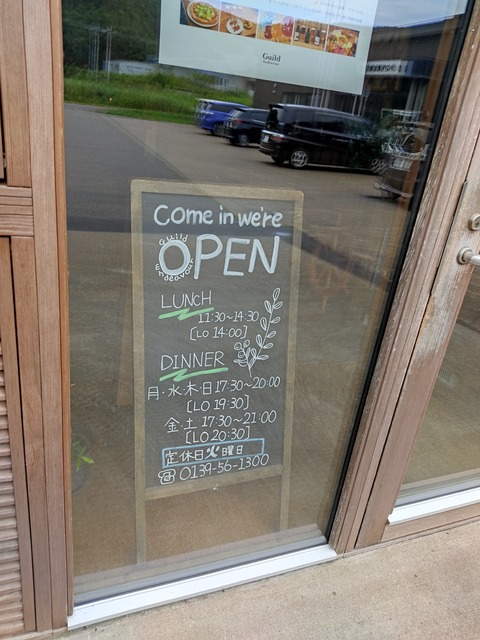 Guild
Come in we're
Guild
OPEN
Endeavour
LUNCH
11:30~14:30
[LO 14:00]
DINNER
月・水・木・日 17:30~20:00
[LO 19:30]
金・土 17:30~21:00
[LO 20:30]
定休日火曜日
☎ 0139-56-1300